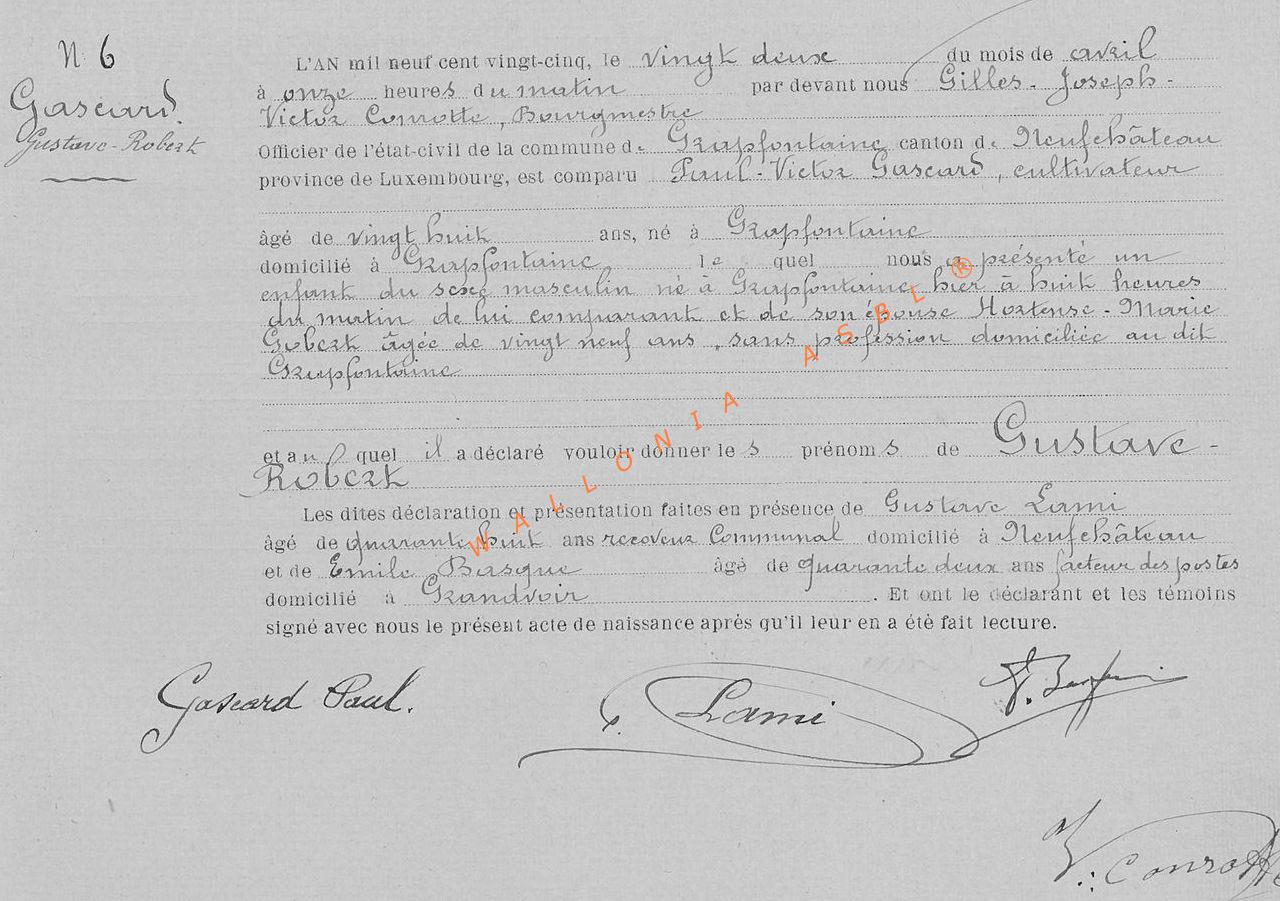 N. 6
Gascard.
Gustave-Robert
L'AN mil neuf cent vingt-cinq, le vingt deux du mois de avril
à onze heures du matin par devant nous Gilles-Joseph-
Victor Conrotte, Bourgmestre
Officier de l'état-civil de la commune de Grapfontaine canton de Neufchâteau
province de Luxembourg, est comparu Paul-Victor Gascard, cultivateur
âgé de vingt huit ans, né à Grapfontaine
domicilié à Grapfontaine le quel nous a présenté un
enfant du sexe masculin né à Grapfontaine hier à huit heures
du matin de lui comparant et de son épouse Hortense-Marie
Gobert âgée de vingt neuf ans, sans profession domiciliée au dit
Grapfontaine
et au quel il a déclaré vouloir donner les prénoms de Gustave-
Robert
Les dites déclaration et présentation faites en présence de Gustave Lami
âgé de quarante huit ans receveur Communal domicilié à Neufchâteau
et de Emile Basque âgé de quarante deux ans facteur des postes
domicilié à Grandvoir. Et ont le déclarant et les témoins
signé avec nous le présent acte de naissance après qu'il leur en a été fait lecture.
Gascard Paul.
Lami
V. Conrotte
WALLONIA ASBL ®